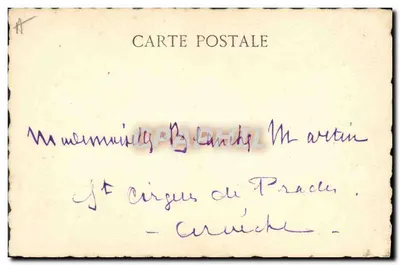 CARTE POSTALE
Mademoiselle Blanche Martin
St Cirgues de Prades.
- Ardèche -